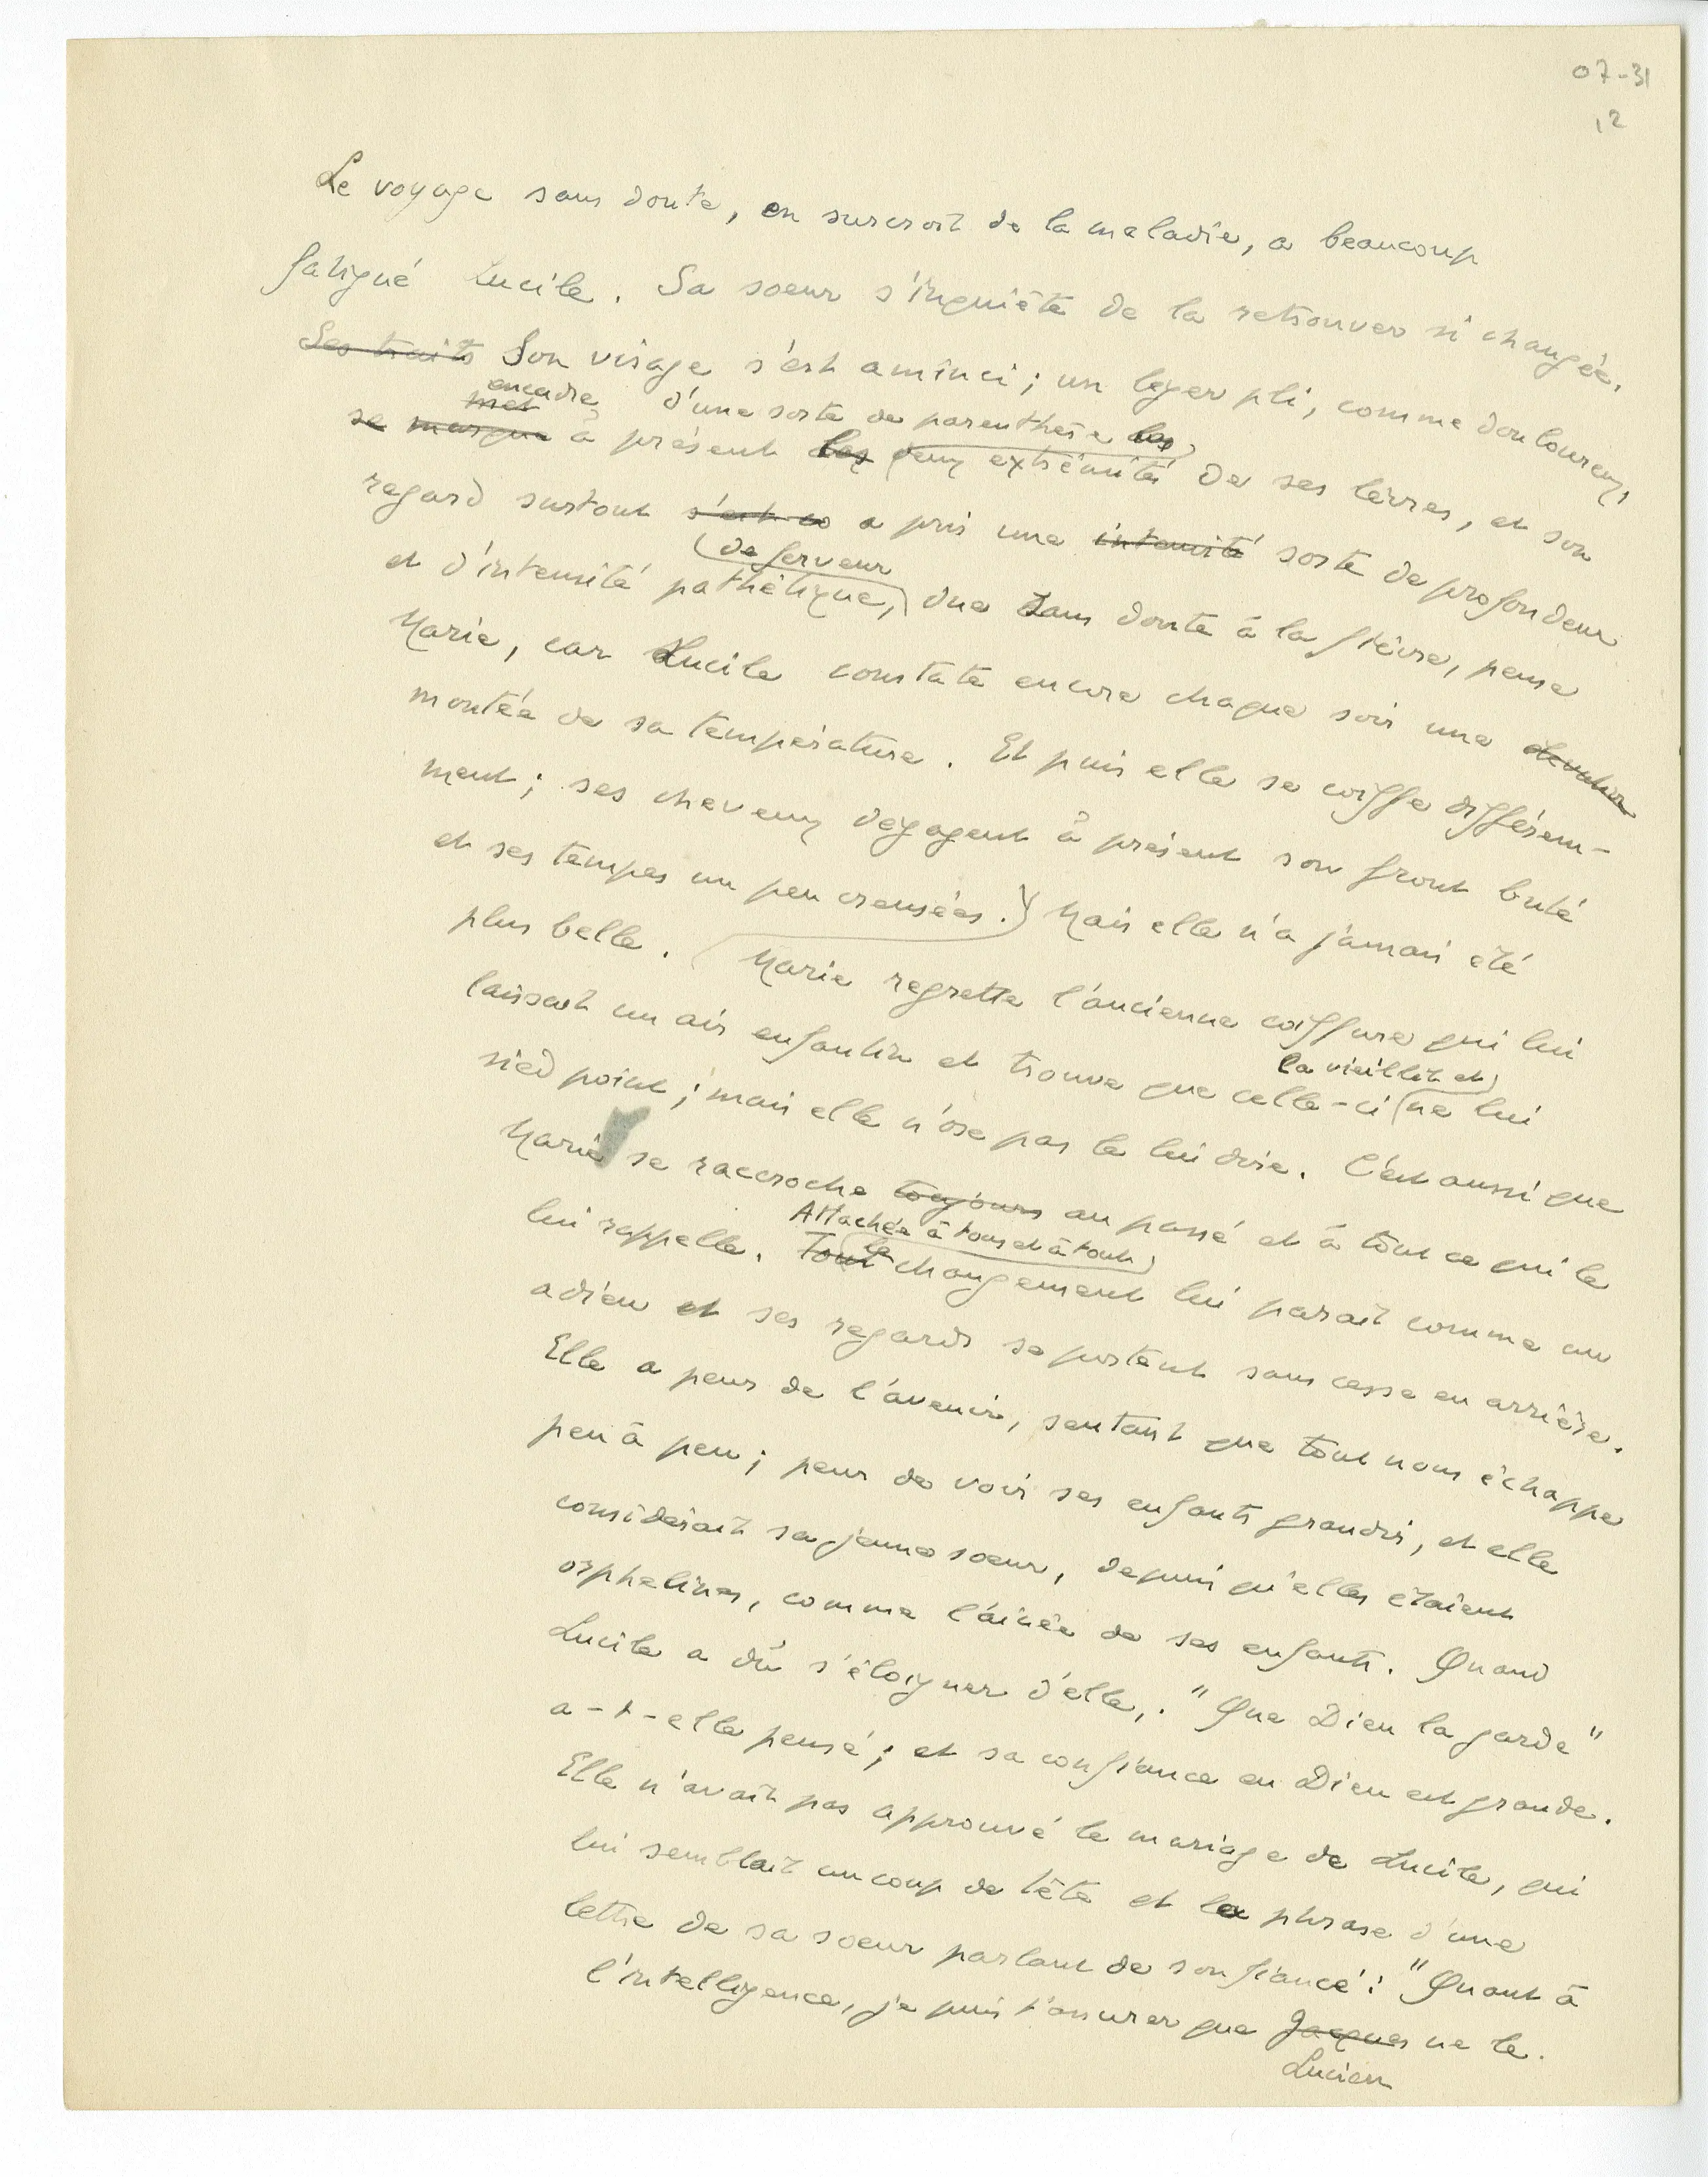 07-31
12
Le voyage sans doute, en surcroît de la maladie, a beaucoup
fatigué Lucile. Sa soeur s'inquiète de la retrouver si changée.
Ses traits Son visage s'est aminci ; un léger pli, comme douloureux,
encadre d'une sorte de parenthèse les
met
se marque à présent les deux extrémités de ses lèvres, et son
regard surtout s'est co a pris une intensité sorte de profondeur
de ferveur
et d'intensité pathétique, due sans doute à la fièvre, pense
Marie, car Lucile constate encore chaque soir une élévation
montée de sa température. Et puis elle se coiffe différem-
ment ; ses cheveux dégagent à présent son front buté
et ses tempes un peu creusées. Mais elle n'a jamais été
plus belle. Marie regrette l'ancienne coiffure qui lui
laissait un air enfantin et trouve que celle-ci ne lui
la vieillit et
sied point ; mais elle n'ose pas le lui dire. C'est aussi que
Marie se raccroche toujours au passé et à tout ce qui le
Attachée à tous et à tout
lui rappelle. Tout le changement lui paraît comme un
adieu et ses regards se portent sans cesse en arrière.
Elle a peur de l'avenir, sentant que tout nous échappe
peu à peu ; peur de voir ses enfants grandir, et elle
considérait sa jeune soeur, depuis qu'elles étaient
orphelines, comme l'aînée de ses enfants. Quand
Lucile a dû s'éloigner d'elle,. "Que Dieu la garde"
a-t-elle pensé ; et sa confiance en Dieu est grande.
Elle n'avait pas approuvé le mariage de Lucile, qui
lui semblait un coup de tête et la phrase d'une
lettre de sa soeur parlant de son fiancé : "Quant à
l'intelligence, je puis t'assurer que Jacques ne le.
Lucien